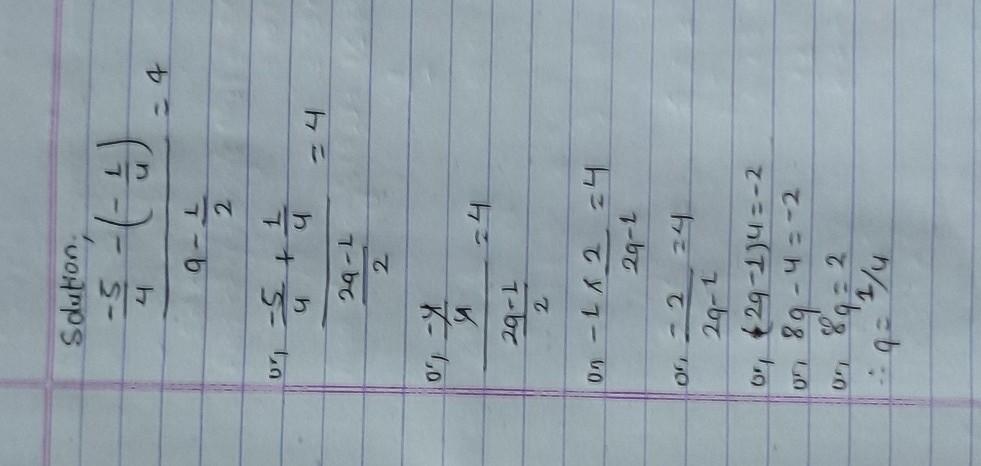 Solution,
(-5/4 - (-1/4))/(q - 1/2) = 4
or, (-5/4 + 1/4)/((2q-1)/2) = 4
or, (-4/4)/((2q-1)/2) = 4
or, -1 × 2/(2q-1) = 4
or, -2/(2q-1) = 4
or, (2q-1)4 = -2
or, 8q - 4 = -2
or, 8q = 2
∴ q = 1/4